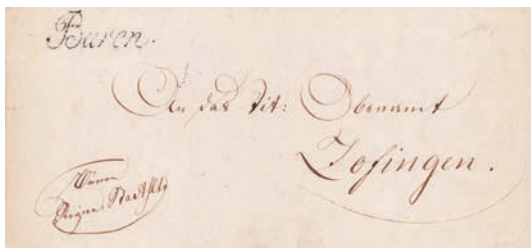 Büren.
An das Tit: Oberamt
Zofingen.